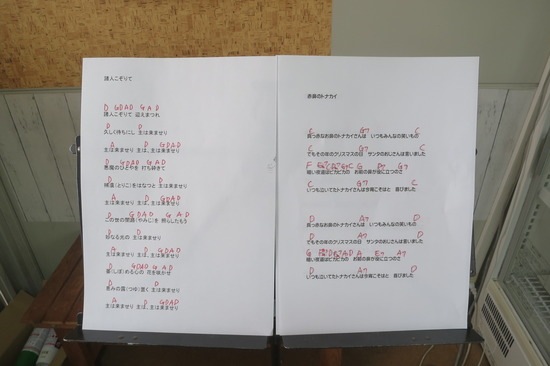 諸人こぞりて
D GDAD G A D
諸人こぞりて 迎えまつれ
D D
久しく待ちにし 主は来ませり
A D GDAD
主は来ませり 主は、主は来ませり
D GDAD G A D
悪魔のひとやを 打ち砕きて
D D
捕虜(とりこ)をはなつと 主は来ませり
A D GDAD
主は来ませり 主は、主は来ませり
D GDAD G A D
この世の闇路(やみじ)を 照らしたもう
D D
妙なる光の 主は来ませり
A D GDAD
主は来ませり 主は、主は来ませり
D GDAD G A D
萎(しぼ)める心の 花を咲かせ
D D
恵みの露(つゆ)置く 主は来ませり
A D GDAD
主は来ませり 主は、主は来ませり
赤鼻のトナカイ
C G7 C
真っ赤なお鼻のトナカイさんは いつもみんなの笑いもの
C G7 C
でもその年のクリスマスの日 サンタのおじさんは言いました
暗い夜道はピカピカの お前の鼻が役に立つのさ
C G7 C
いつも泣いてたトナカイさんは今宵こそはと 喜びました
D A7 D
真っ赤なお鼻のトナカイさんは いつもみんなの笑いもの
D A7 D
でもその年のクリスマスの日 サンタのおじさんは言いました
暗い夜道はピカピカの お前の鼻が役に立つのさ
D A7 D
いつも泣いてたトナカイさんは今宵こそはと 喜びました